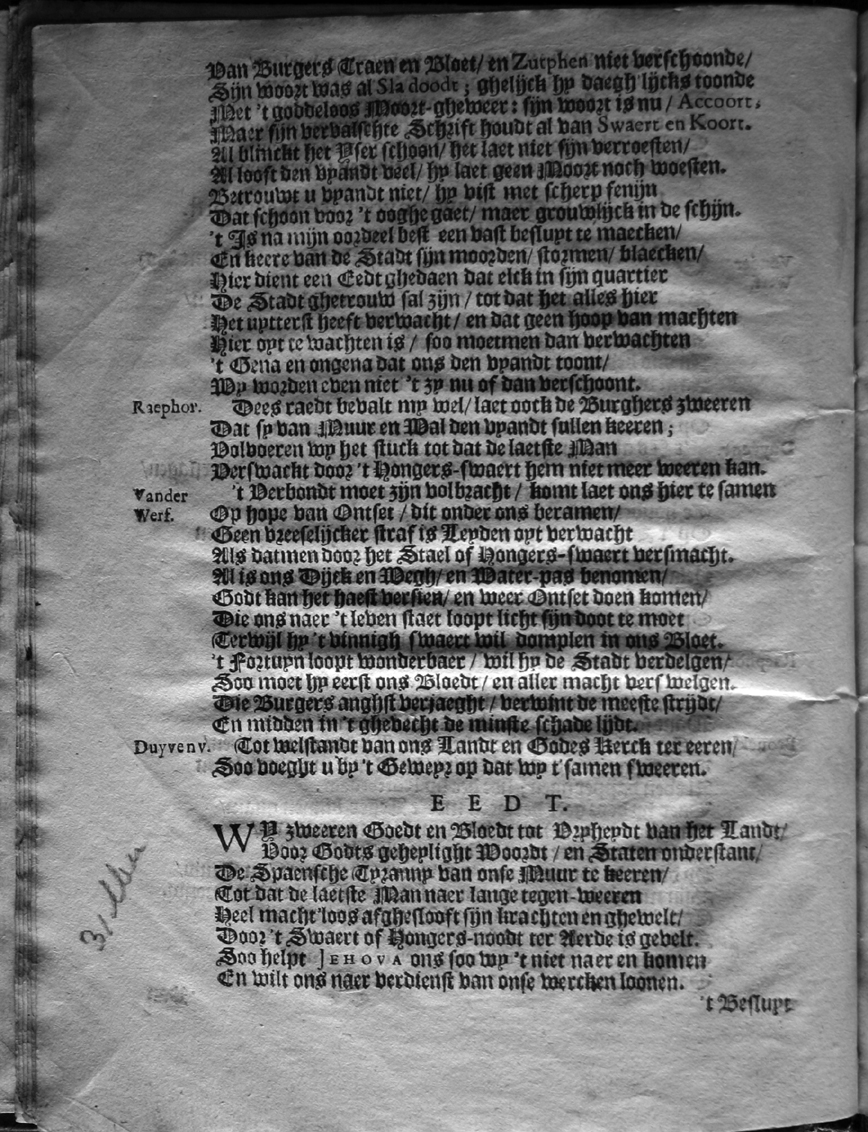 Van Burgers Traen en Bloet/ en Zutphen niet verschoonde/
Sijn woort was al Sla doodt; ghelijck hy daegh lijcks toonde
Met 't goddeloos Moort-gheweer: sijn woort is nu/ Accoort,
Maer sijn vervalschte Schrift houdt al van Swaert en Koort.
Al blinckt het Yser schoon/ het laet niet sijn verroesten/
Al looft den vyandt veel/ hy laet geen Moort noch woesten.
Betrouwt u vyandt niet/ hy vist met scherp fenijn
Dat schoon voor 't ooghe gaet/ maer grouwlijck in de schijn.
't Is na mijn oordeel best een vast besluyt te maecken/
En keere van de Stadt sijn moorden/ stormen/ blaecken/
Hier dient een Eedt ghedaen dat elck in sijn quartier
De Stadt ghetrouw sal zijn/ tot dat het alles hier
Het uytterst heeft verwacht/ en dat geen hoop van machten
Hier oyt te wachten is/ soo moetmen dan verwachten
't Gena en ongena dat ons den vyandt toont/
Wy worden even niet 't zy nu of dan verschoont.
Raephor. Dees raedt bevalt my wel/ laet oock de Burghers zweeren
Dat sy van Muur en Wal den vyandt sullen keeren;
Volvoeren wy het stuck tot dat de laetste Man
Verswackt door 't Hongers-swaert hem niet meer weeren kan.
Vander Werf. 't Verbondt moet zijn volbracht/ komt laet ons hier te samen
Op hope van Ontset/ dit onder ons beramen/
Geen vreeselijcker straf is Leyden oyt verwacht
Als datmen door het Stael of Hongers-swaert versmacht.
Al is ons Dijck en Wegh/ en Water-pas benomen/
Godt kan het haest versien/ en weer Ontset doen komen/
Die ons naer 't leven staet loopt licht sijn doot te moet
Terwijl hy 't vinnigh swaert wil domplen in ons Bloet.
't Fortuyn loopt wonderbaer/ wil hy de Stadt verdelgen/
Soo moet hy eerst ons Bloedt/ en aller macht verswelgen.
Die Burgers anghst verjaeght/ verwint de meeste strijdt/
En midden in 't ghevecht de minste schade lijdt.
Duyvenv. Tot welstandt van ons Landt en Godes Kerck ter eeren/
Soo voeght u by 't Geweyr op dat wy t'samen sweeren.
EEDT.
WY zweeren Goedt en Bloedt tot Vryheydt van het Landt/
Voor Godts geheylight Woordt/ en Staten onderstant/
De Spaensche Tyranny van onse Muur te keeren/
Tot dat de laetste Man naer lange tegen-weeren
Heel macht'loos afgheslooft sijn krachten en ghewelt/
Door 't Swaert of Hongers-noodt ter Aerde is gevelt.
Soo helpt JEHOVA ons soo wy 't niet naer en komen
En wilt ons naer verdienst van onse wercken loonen.
't Besluyt